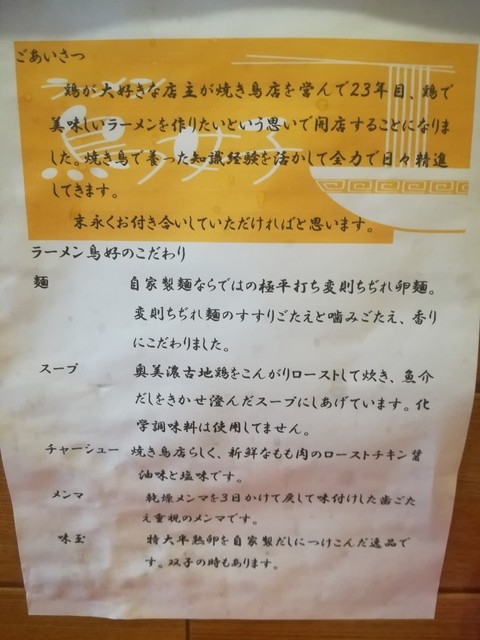 ごあいさつ
ラーメン
鳥好
鶏が大好きな店主が焼き鳥店を営んで23年目、鶏で
美味しいラーメンを作りたいという思いで開店することになりま
した。焼き鳥で養った知識経験を活かして全力で日々精進
してきます。
末永くお付き合いしていただければと思います。
ラーメン鳥好のこだわり
麺 自家製麺ならではの極平打ち変則ちぢれ卵麺。
変則ちぢれ麺のすすりごたえと噛みごたえ、香り
にこだわりました。
スープ 奥美濃古地鶏をこんがりローストして炊き、魚介
だしをきかせ澄んだスープにしあげています。化
学調味料は使用してません。
チャーシュー 焼き鳥店らしく、新鮮なもも肉のローストチキン醤
油味と塩味です。
メンマ 乾燥メンマを3日かけて戻して味付けした歯ごた
え重視のメンマです。
味玉 特大半熟卵を自家製だしにつけこんだ逸品で
す。双子の時もあります。